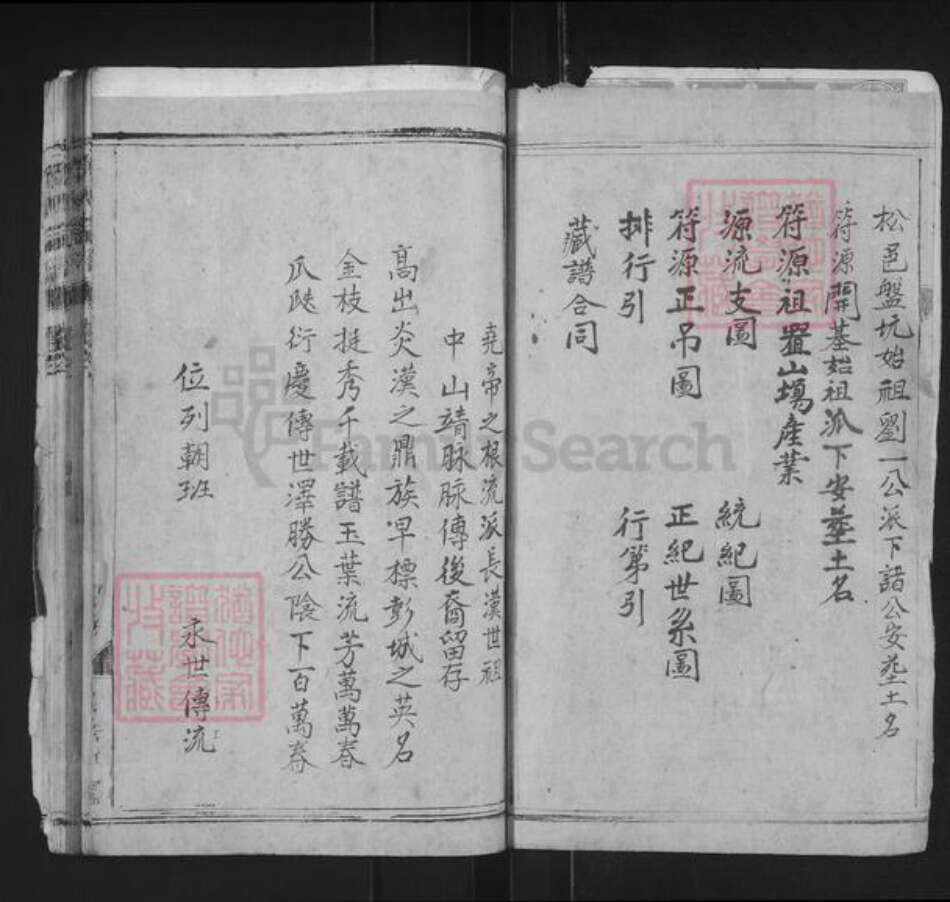 松邑盤坑始祖劉一公派下諸公安塟土名
符源開基始祖派下安塟土名
符源祖置山塲產業
源流支圖 統紀圖
符源正吊圖 正紀世系圖
排行引 行第引
藏譜合同
堯帝之根流派長漢世祖
中山靖脉脉傳後裔留存
高出炎漢之鼎族早標彭城之英名
金枝挺秀千載譜玉葉流芳萬萬春
瓜瓞衍慶傳世澤勝公陰下百萬春
位列朝班
永世傳流
FamilySearch